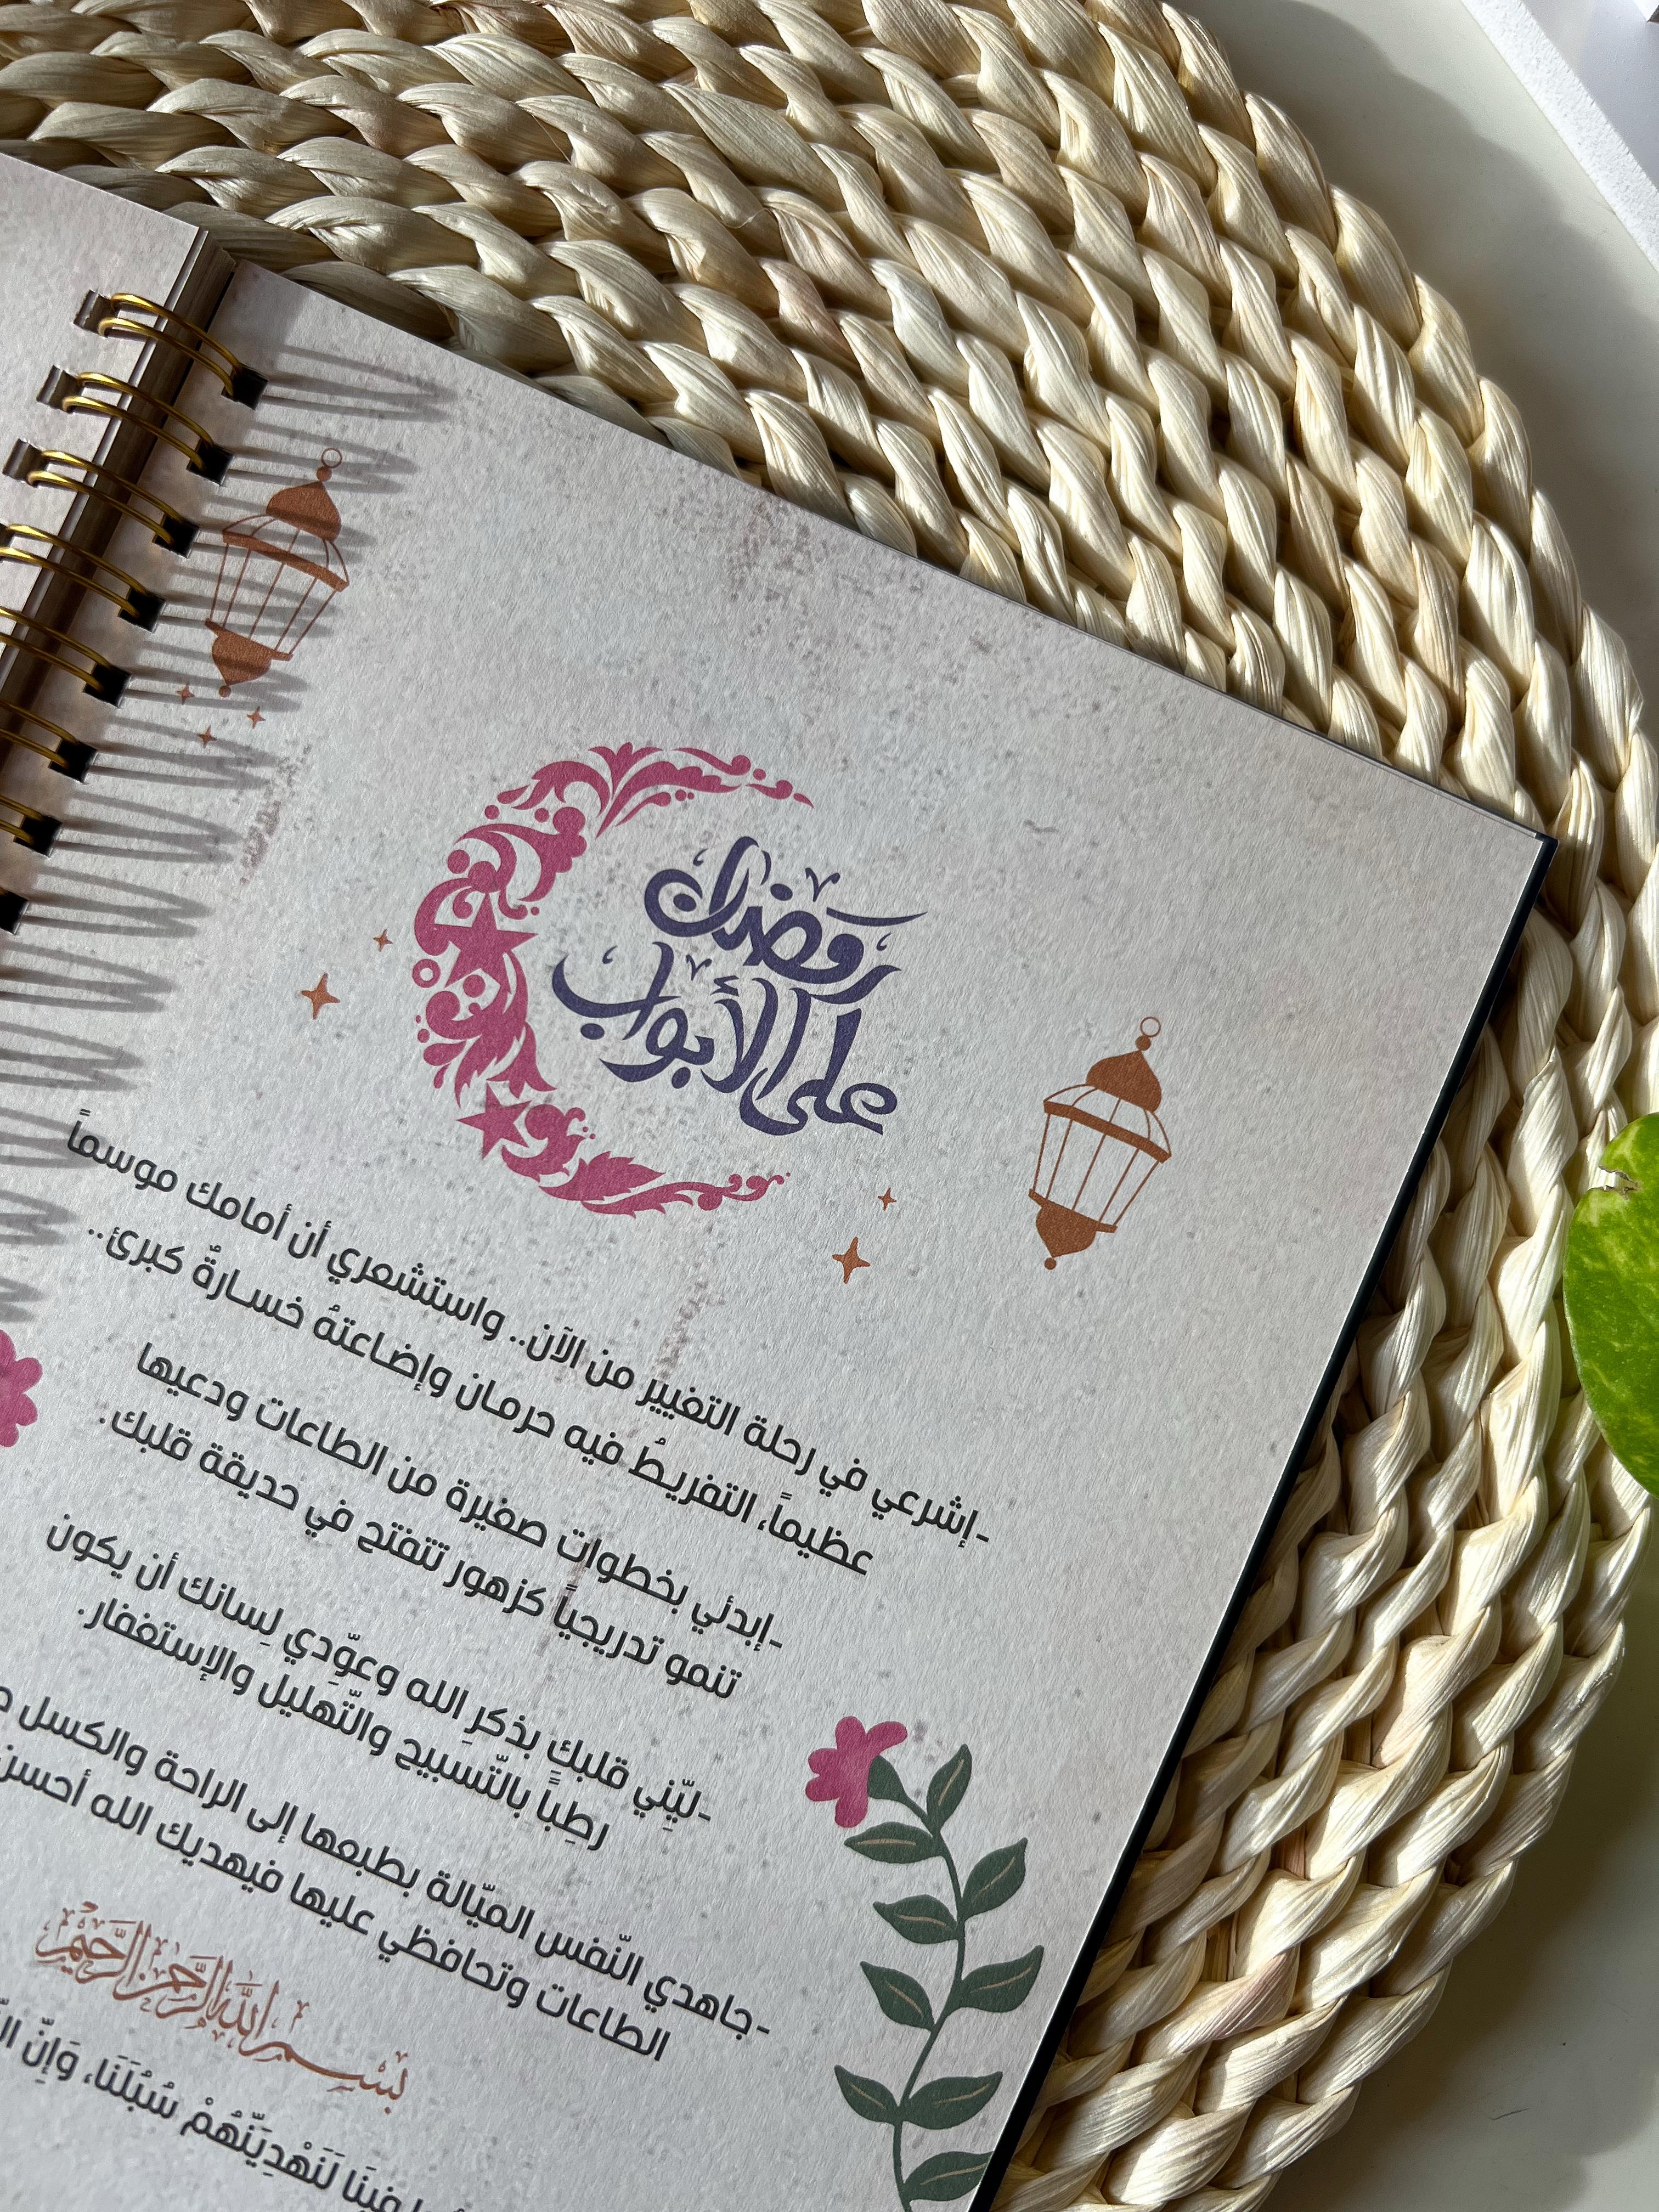 رمضان
على الأبواب
-إشرعي في رحلة التغيير من الآن.. واستشعري أن أمامك موسماً
عظيماً، التفريطُ فيه حرمـان وإضاعتهُ خسـارةٌ كبرىٰ..
-إبدئي بخطوات صغيرة من الطاعات ودعيها
تنمو تدريجياً كزهور تتفتح في حديقة قلبك.
-ليّني قلبكِ بذكرِ الله وعوّدي لِسانك أن يكون
رطِباً بالتّسبيح والتّهليل والإستغفار.
-جاهدي النّفس الميّالة بطبعها إلى الراحة والكسل
الطاعات وتحافظي عليها فيهديك الله أحسن
بسم الله الرحمن الرحيم
فِينَا لَنَهْدِيَنّهُمْ سُبُلَنَا، وَإِنّ